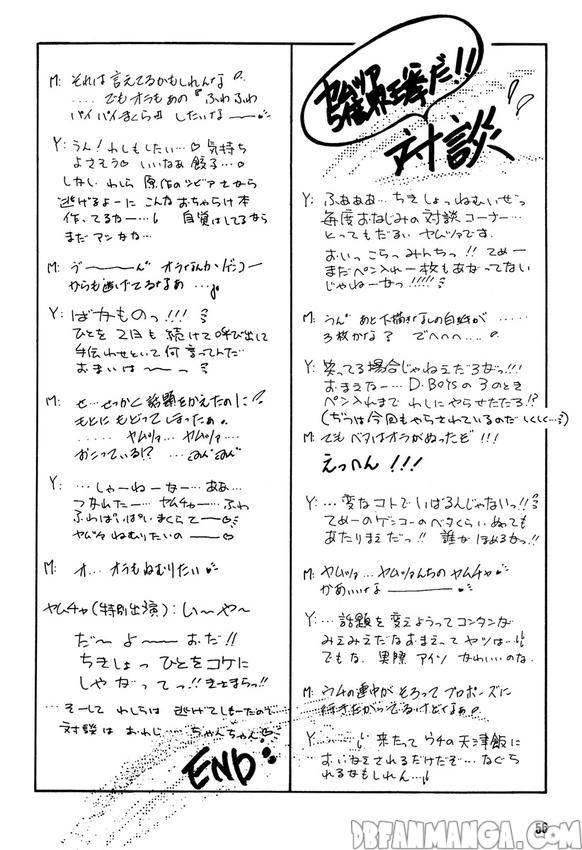 ヤムツァ
5倍界王拳だ!!
対談
Y: ふぁぁぁ…ちきしょっねむいぜっ
毎度おなじみの対談コーナー…
とってもだるい ヤムツァです。
おいっこらっみんちっ!! てめー
まだペン入れ一枚もあがってない
じゃねーかっ!!!!!
M: うん あと下描きなしの白紙が……
3枚かな? でへへへ……。
Y: 笑ってる場合じゃねえだろっ!!
おまえなー…D.Boysの3のとき
ペン入れまで わしにやらせたたろ!?
(じつは今回もやらされているのだ しくしく…)
M: でも ベタはオラがぬったぞ!!!
えっへん!!!
Y: …変なコトでいばるんじゃないっ!!
てめーのゲンコーのベタくらいぬっても
あたりまえだっ!! 誰がほめるかっ!!
M: ヤムツァ…ヤムツァんちのヤムチャ
かあいいなー
Y: …話題を変えようってコンタンが
みえみえだな おまえってヤツは…
でもな、実際 アイツ かわいいのな。
M: ウチの連中がそろってプロポーズに
行きたがってるけどなぁ。
Y: …… 来たって ウチの天津飯に
おいかえされるだけだぞ… なぐら
れるかもしれん…
M: それは言えてるかもしれんな
……でもオラもあの『ふわふわ
パイパイまくら』したいなー
Y: うん!わしもしたい…♡ 気持ち
よさそう♡ いいなぁ 餃子…
しかし わしら 原作のシビアさから
逃げるよーに こんなおちゃらけ本
作ってるなー… 自覚はしてるなら
まだマシかな…
M: うーーん゛ オラなんかパソコン
からも逃げてるなぁ…
Y: ばかものっ!!!
ひとを 2日も続けて呼び出して
手伝わせといて何言ってんだ
おまいはーーっ
M: せ…せっかく話題をかえたのに
もとに もどってしまったぁ。
…… ヤムツァ ヤムツァ…
おこっている!?
Y: …しゃーねーなー…ああ…
つかれたー…ヤムチャー…ふわ
ふわぱいぱいまくらでーー♡
ヤムツァ ねむりたいのー♡
M: オ…オラもねむりたい
ヤムチャ(特別出演): い〜や〜
だ〜 よ〜 おだ!!
ちきしょっ ひとをコケに
しやがってっ!! きさまらっ!!
…そーして わしらは 逃げてしもーたので
対談は おわじ…ちゃんちゃん♡
END
56
DBFANMANGA.COM